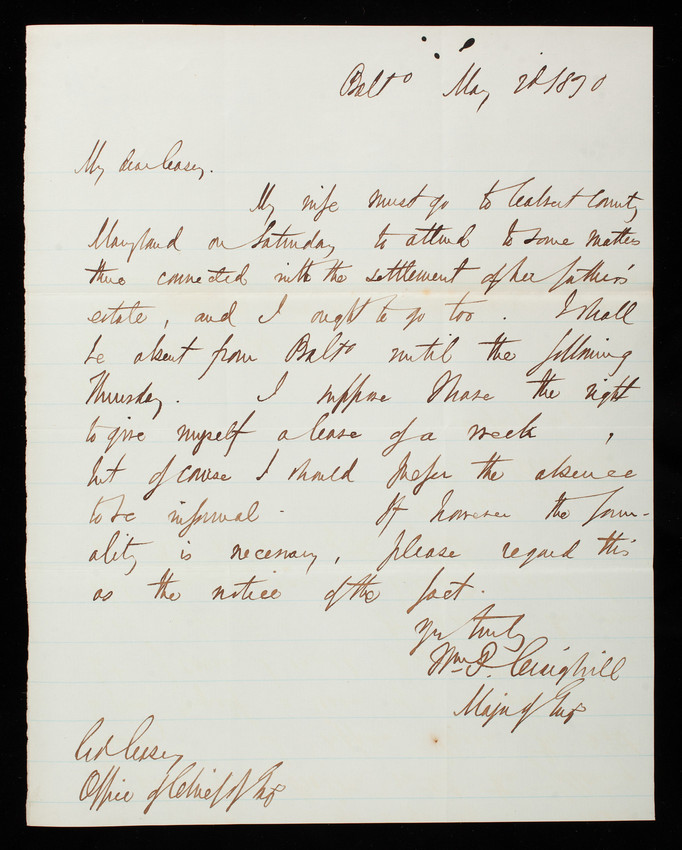 Balto May 2d 1870
My dear Casey.
My wife must go to Calvert County
Maryland on Saturday to attend to some matters
there connected with the settlement of her father's
estate, and I ought to go too. I shall
be absent from Balto until the following
Thursday. I suppose I have the right
to give myself a leave of a week,
but of course I should prefer the absence
to be informal. If however the form-
ality is necessary, please regard this
as the notice of the fact.
Yrs truly
Wm P. Craighill
Major of Engs
Casey
Office of Chief of Engs